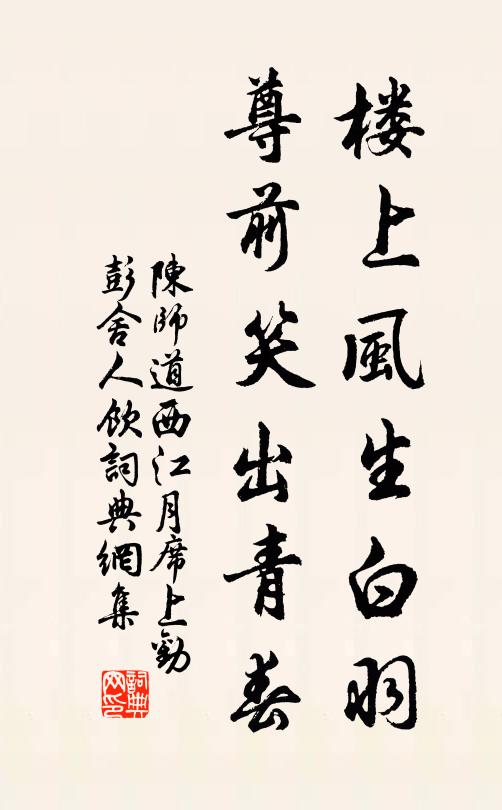 楼上風生白羽
尊前笑出青春
陳師道西江月席上勸
彭舍人飲詞典網集
詞典网印